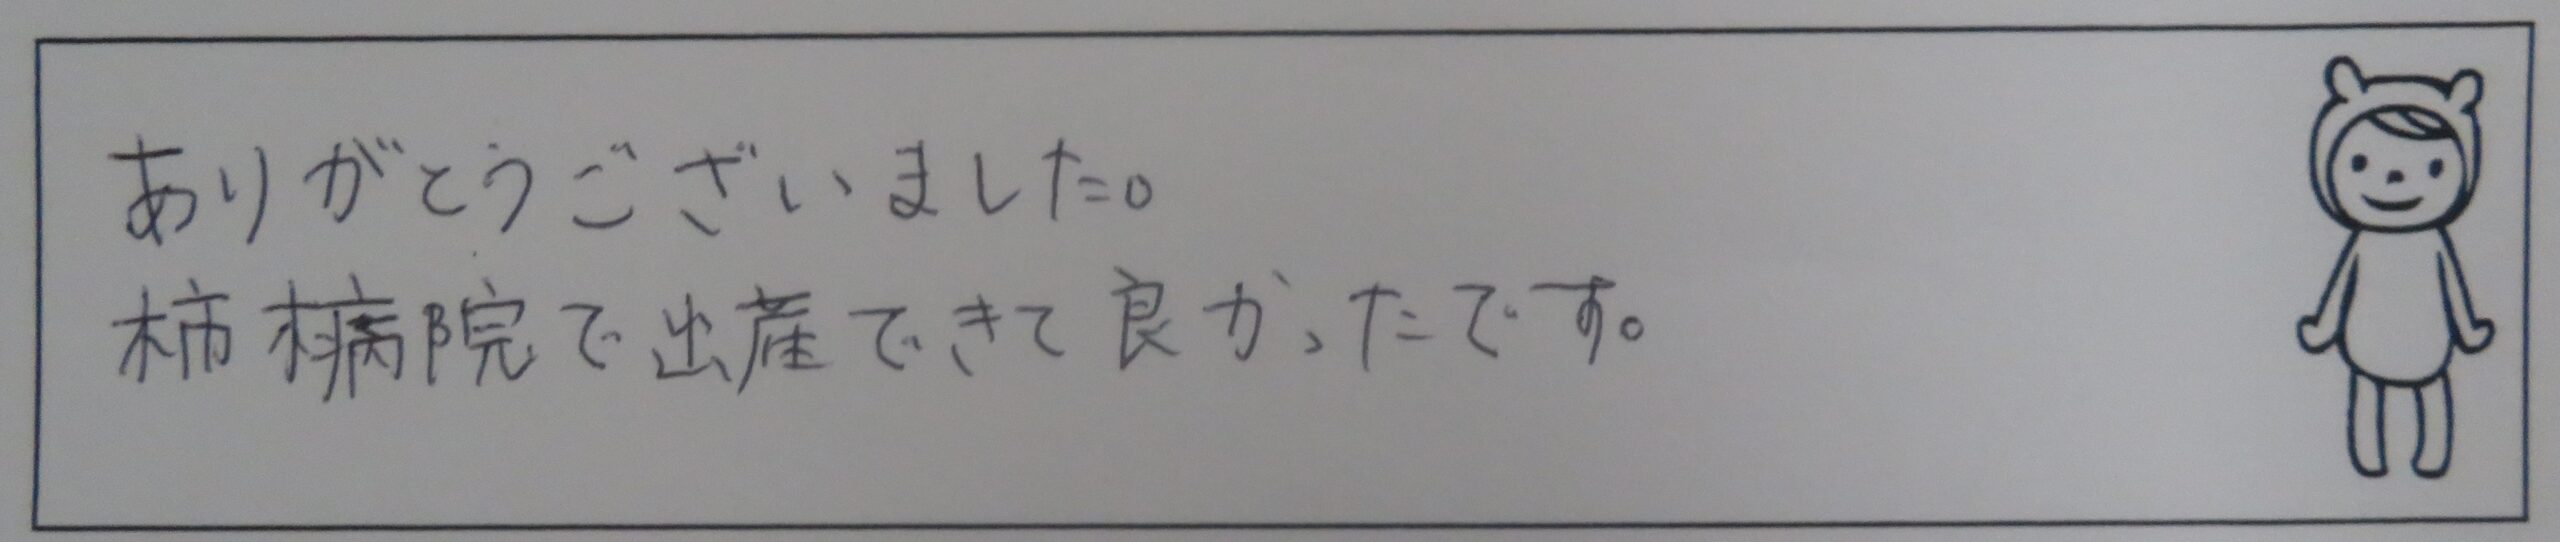 ありがとうございました。
柿病院で出産できて良かったです。